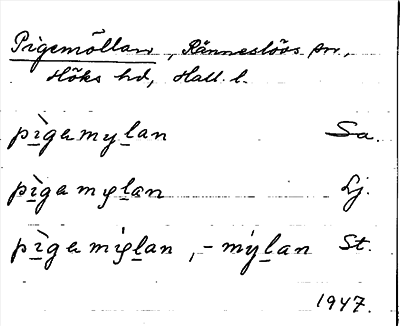 Pigemöllan, Ränneslövs sn,
Höks hd, Hall. l.
pì̱̱gamyḻan Sa.
pì̱gamyḻan Lj.
pì̱gamýḻan, -mýḻan St.
1947.